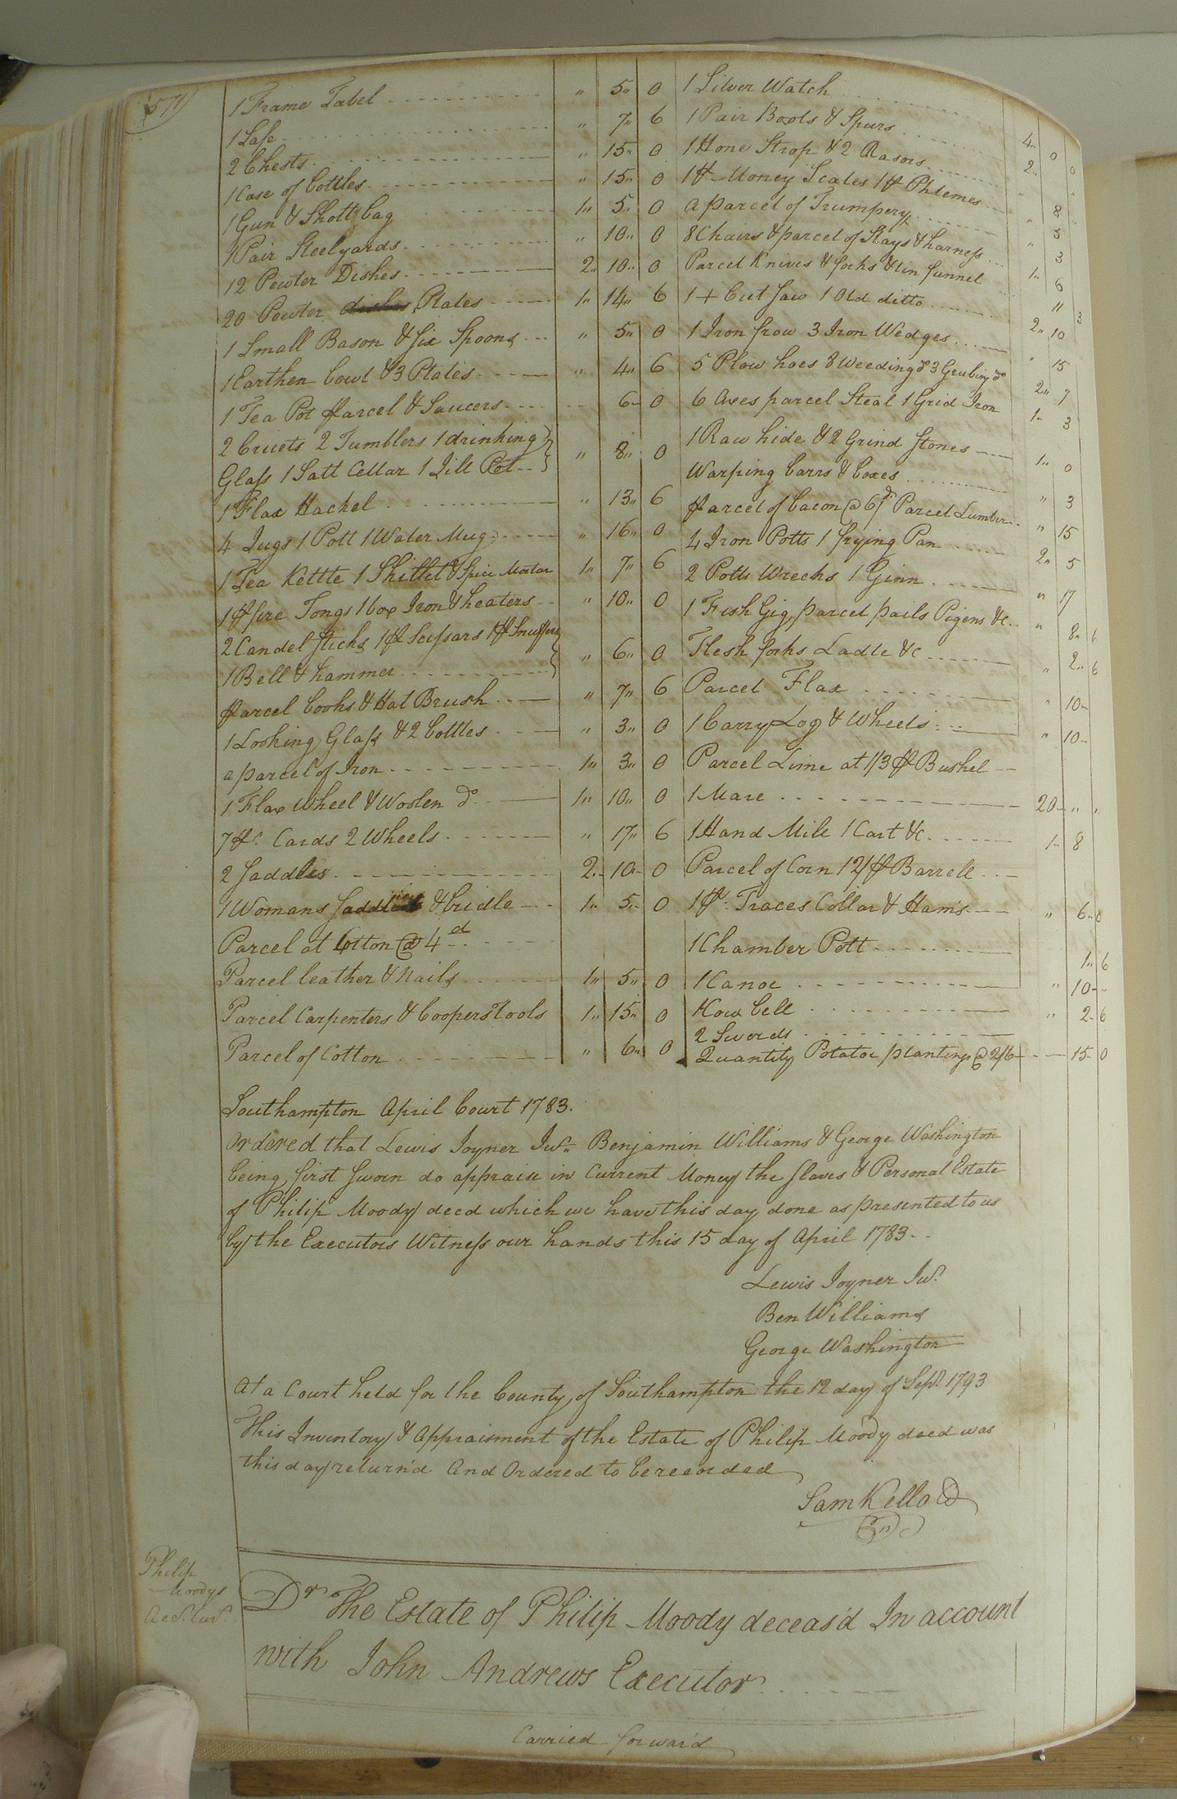 571
1 Frame Tabel " 5 0
1 Safe " 7 6
2 Chests " 15 0
1 Case of bottles " 15 0
1 Gun & Shott bag 1 5 0
1 Pair Steelyards " 10 0
12 Pewter Dishes 2 10 0
20 Pewter dishes Plates 1 14 6
1 Small Bason & Six Spoons " 5 0
1 Earthen bowl & 3 Plates " 4 6
1 Tea Pot Parcel & Saucers 6 0
2 Cruets 2 Tumblers 1 drinking
Glass 1 Salt Cellar 1 Jill Pot " 8 0
1 Flax Hackel " 13 6
4 Jugs 1 Pott 1 Water Mug " 16 0
1 Tea Kettle 1 Skillet & Spice Mortar 1 7 6
1 pr fire Tongs 1 box Iron & heaters " 10 0
2 Candel sticks 1 pr Scissars 1 pr Snuffers
1 Bell & hammer " 6 0
Parcel books & Hat Brush " 7 6
1 Looking Glass & 2 bottles " 3 0
a parcel of Iron 1 3 0
1 Flax Wheel & Woolen do 1 10 0
7 pr Cards 2 Wheels " 17 6
2 Saddles 2 10 0
1 Womans Saddle & bridle 1 5 0
Parcel of Cotton @ 4d
Parcel leather & Nails 1 5 0
Parcel Carpenters & Coopers Tools 1 15 0
Parcel of Cotton " 6 0
1 Silver Watch 4 0 0
1 Pair Boots & Spurs 2
1 Hone Strop & 2 Rasors " 8
1 pr Money Scales 1 pr Phlemes " 5
a parcel of Trumpery 3
8 Chairs & parcel of Stays & harness 1 6
Parcel Knives & forks & tin funnel " 3
1 + Cut Saw 1 Old ditto 2 10
1 Iron frow 3 Iron Wedges " 15
5 Plow hoes 8 Weeding do 3 Grubing do 2 7
6 Axes parcel Steal 1 Grid Iron 1 3
1 Raw hide & 2 Grind Stones 1 0
Warping barrs & boxes " 3
Parcel of bacon @ 6d Parcel Lumber " 15
4 Iron Potts 1 frying Pan 2 5
2 Potts Wrecks 1 Ginn " 17
1 Fish Gig, parcel pails Pigens &c " 8 6
Flesh forks Ladle &c " 2 6
Parcel Flax " 10
1 Carry Log & Wheels " 10
Parcel Lime at 1/3 pr Bushel
1 Mare 20 " "
1 Hand Mill 1 Cart &c 1 8
Parcel of Corn 12/ pr Barrell
1 pr Traces Collar & Hams " 6 0
1 Chamber Pott 1 6
1 Canoe " 10
1 Cow bell " 2 6
2 Swords
Quantity Potatoe plantings @ 2/6 15 0
Southampton April Court 1783.
Ordered that Lewis Joyner Junr. Benjamin Williams & George Washington
being first sworn do appraise in Current Money the slaves & Personal Estate
of Philip Moody decd which we have this day done as presented to us
by the Executors Witness our hands this 15 day of April 1783
Lewis Joyner Jur.
Ben Williams
George Washington
At a Court held for the County of Southampton the 12 day of Sept. 1793
This Inventory & Appraisment of the Estate of Philip Moody decd was
this day return'd And Ordered to be recorded
Sam Kello CC
Philip
Moodys
Acct. Curt.
Dr. The Estate of Philip Moody deceas'd In account
with John Andrews Executor
Carried forward